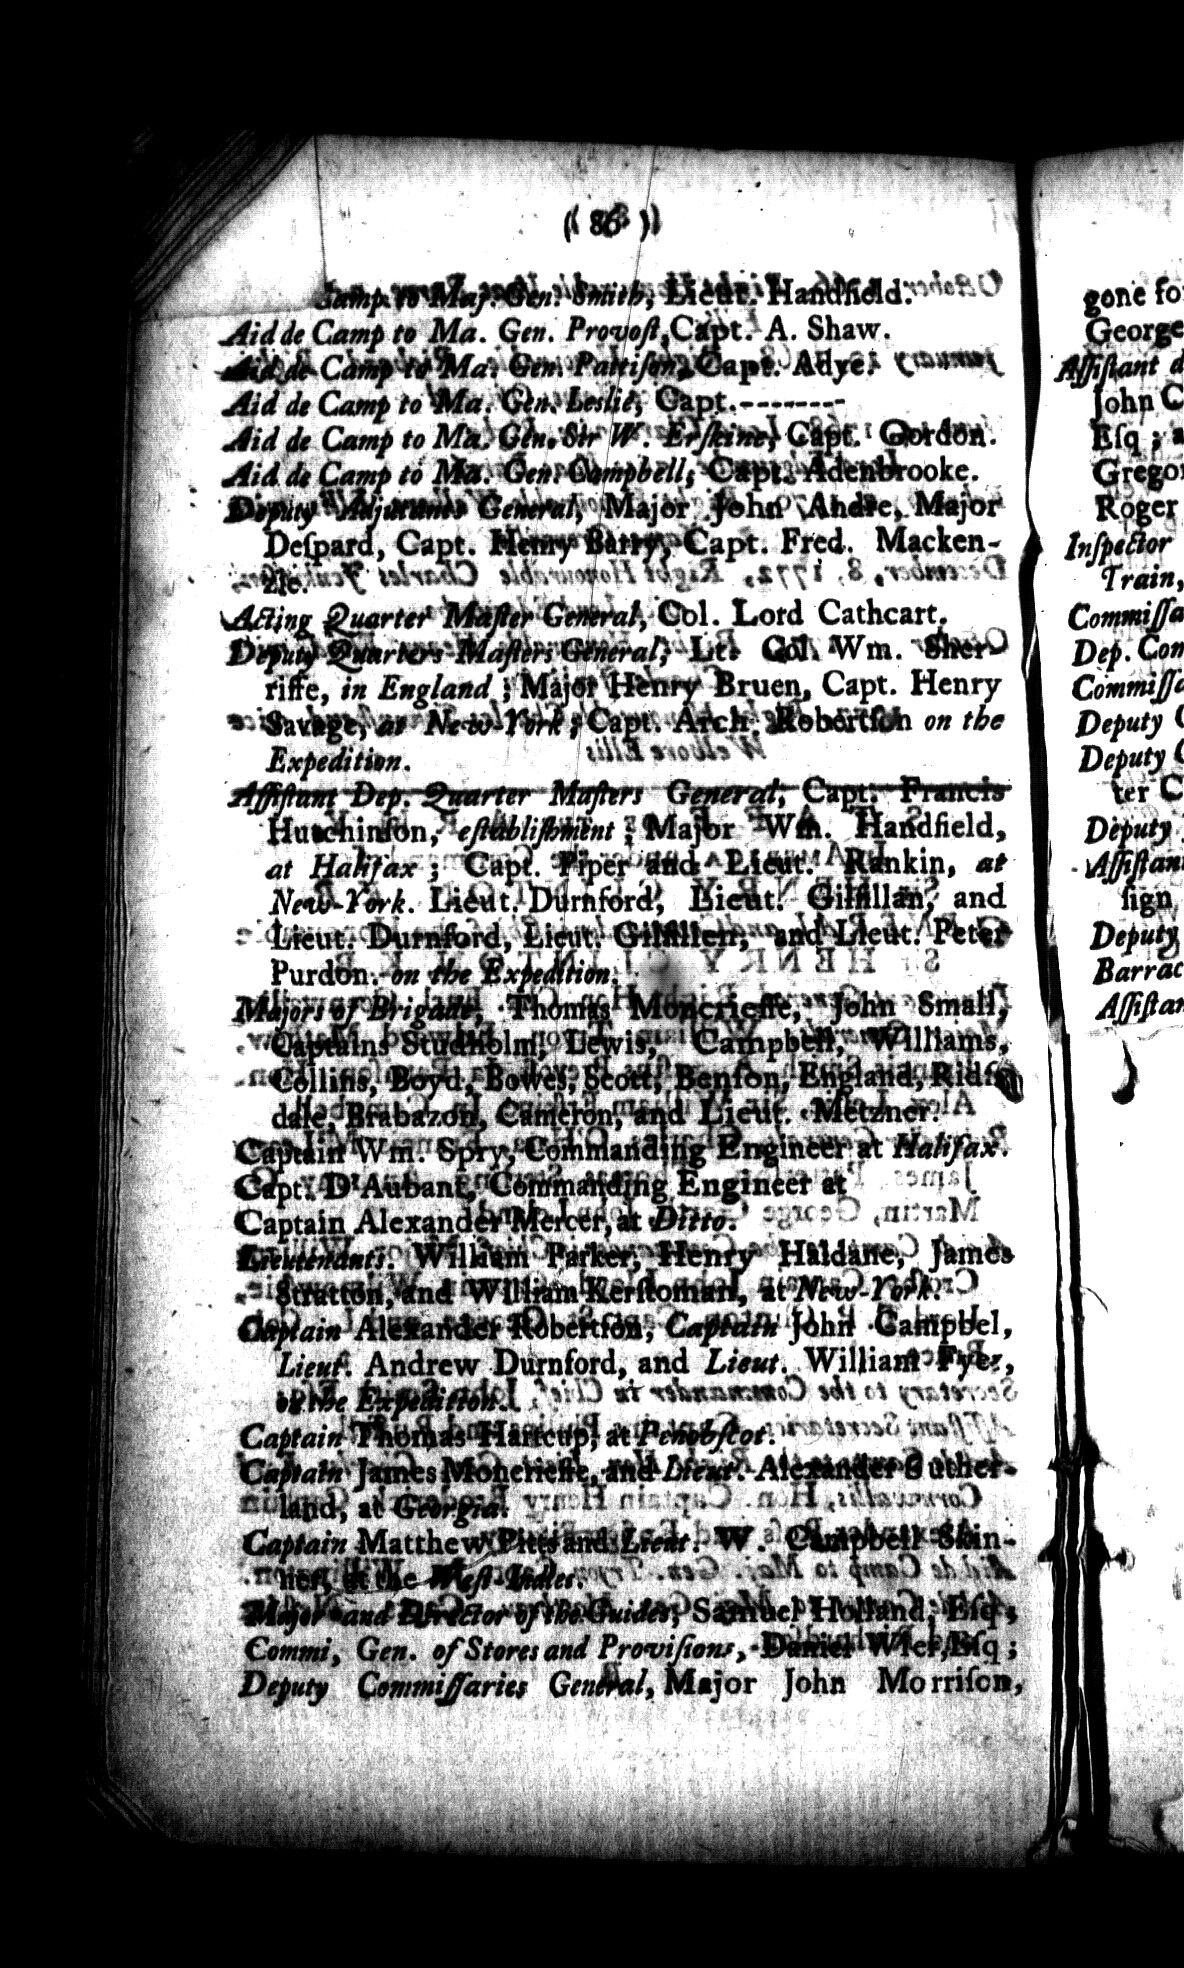 ( 86 )
Camp. to Maj. Gen. Smith, Lieut. Handfield.
Aid de Camp to Ma. Gen. Provoſt, Capt. A. Shaw.
Aid de Camp to Ma. Gen. Pattiſon, Capt. Adye.
Aid de Camp to Ma. Gen. Leslie, Capt.--------
Aid de Camp to Ma. Gen. Sir W. Erſkine, Capt. Gordon.
Aid de Camp to Ma. Gen. Campbell, Capt. Adenbrooke.
Deputy Adjutants General, Major John Andre, Major
Deſpard, Capt. Henry Barry, Capt. Fred. Macken-
zie.
Acting Quarter Maſter General, Col. Lord Cathcart.
Deputy Quarters Maſters General, Lt. Col. Wm. Sher-
riffe, in England ; Major Henry Bruen, Capt. Henry
Savage, at New-York ; Capt. Arch. Robertſon on the
Expedition.
Aſſiſtant Dep. Quarter Maſters General, Capt. Francis
Hutchinſon, eſtabliſhment ; Major Wm. Handfield,
at Halifax ; Capt. Piper and Lieut. Rankin, at
New-York. Lieut. Durnford, Lieut. Gilfillan, and
Lieut. Durnford, Lieut. Gilfillen, and Lieut. Peter
Purdon. on the Expedition.
Majors of Brigade, Thomas Moncrieffe, John Small,
Captains Studholm, Lewis, Campbell, Williams,
Collins, Boyd, Bowes, Scott, Benſon, England, Ridſ-
dale, Brabazon, Cameron, and Lieut. Metzner.
Captain Wm. Spry, Commanding Engineer at Halifax.
Capt. D'Aubant, Commanding Engineer at
Captain Alexander Mercer, at Ditto.
Lieutenants. William Parker, Henry Haldane, James
Stratton, and William Kerſtoman, at New-York.
Captain Alexander Robertſon, Captain John Campbel,
Lieut. Andrew Durnford, and Lieut. William Fyer,
on the Expedition.
Captain Thomas Hartcup, at Penobſcot.
Captain James Moncrieffe, and Lieut. Alexander Suther-
land, at Georgia.
Captain Matthew Pitts and Lieut. W. Campbell Skin-
ner, at the Weſt-Indies.
Major and Director of the Guides, Samuel Holland, Eſq ;
Commi, Gen. of Stores and Proviſions, Daniel Wier, Eſq ;
Deputy Commiſſaries General, Major John Morriſon,
gone fo
George
Aſſiſtant d
John C
Eſq ; a
Gregor
Roger
Inſpector
Train,
Commiſſa
Dep. Com
Commiſſa
Deputy C
Deputy C
ter C
Deputy
Aſſiſtant
ſign
Deputy
Barrac
Aſſiſtan